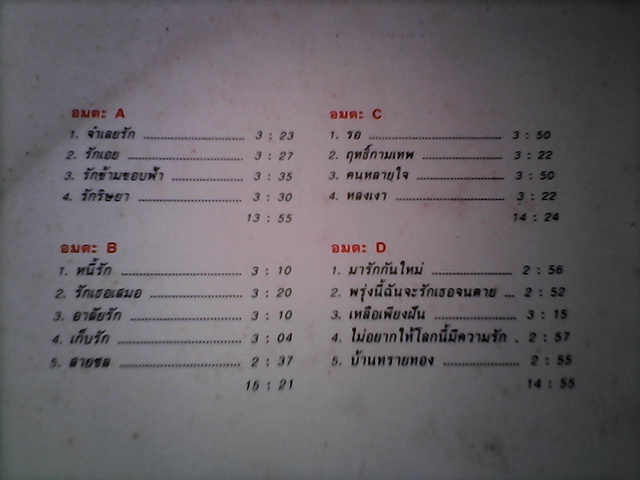 อมตะ A
1. จำเลยรัก 3 : 23
2. รักเอย 3 : 27
3. รักข้ามขอบฟ้า 3 : 35
4. รักริษยา 3 : 30
13 : 55
อมตะ B
1. หนี้รัก 3 : 10
2. รักเธอเสมอ 3 : 20
3. อาลัยรัก 3 : 10
4. เก็บรัก 3 : 04
5. สายชล 2 : 37
15 : 21
อมตะ C
1. รอ 3 : 50
2. ฤทธิ์กามเทพ 3 : 22
3. คนหลายใจ 3 : 50
4. หลงเงา 3 : 22
14 : 24
อมตะ D
1. มารักกันใหม่ 2 : 56
2. พรุ่งนี้ฉันจะรักเธอจนตาย ... 2 : 52
3. เหลือเพียงฝัน 3 : 15
4. ไม่อยากให้โลกนี้มีความรัก . 2 : 57
5. บ้านทรายทอง 2 : 55
14 : 55